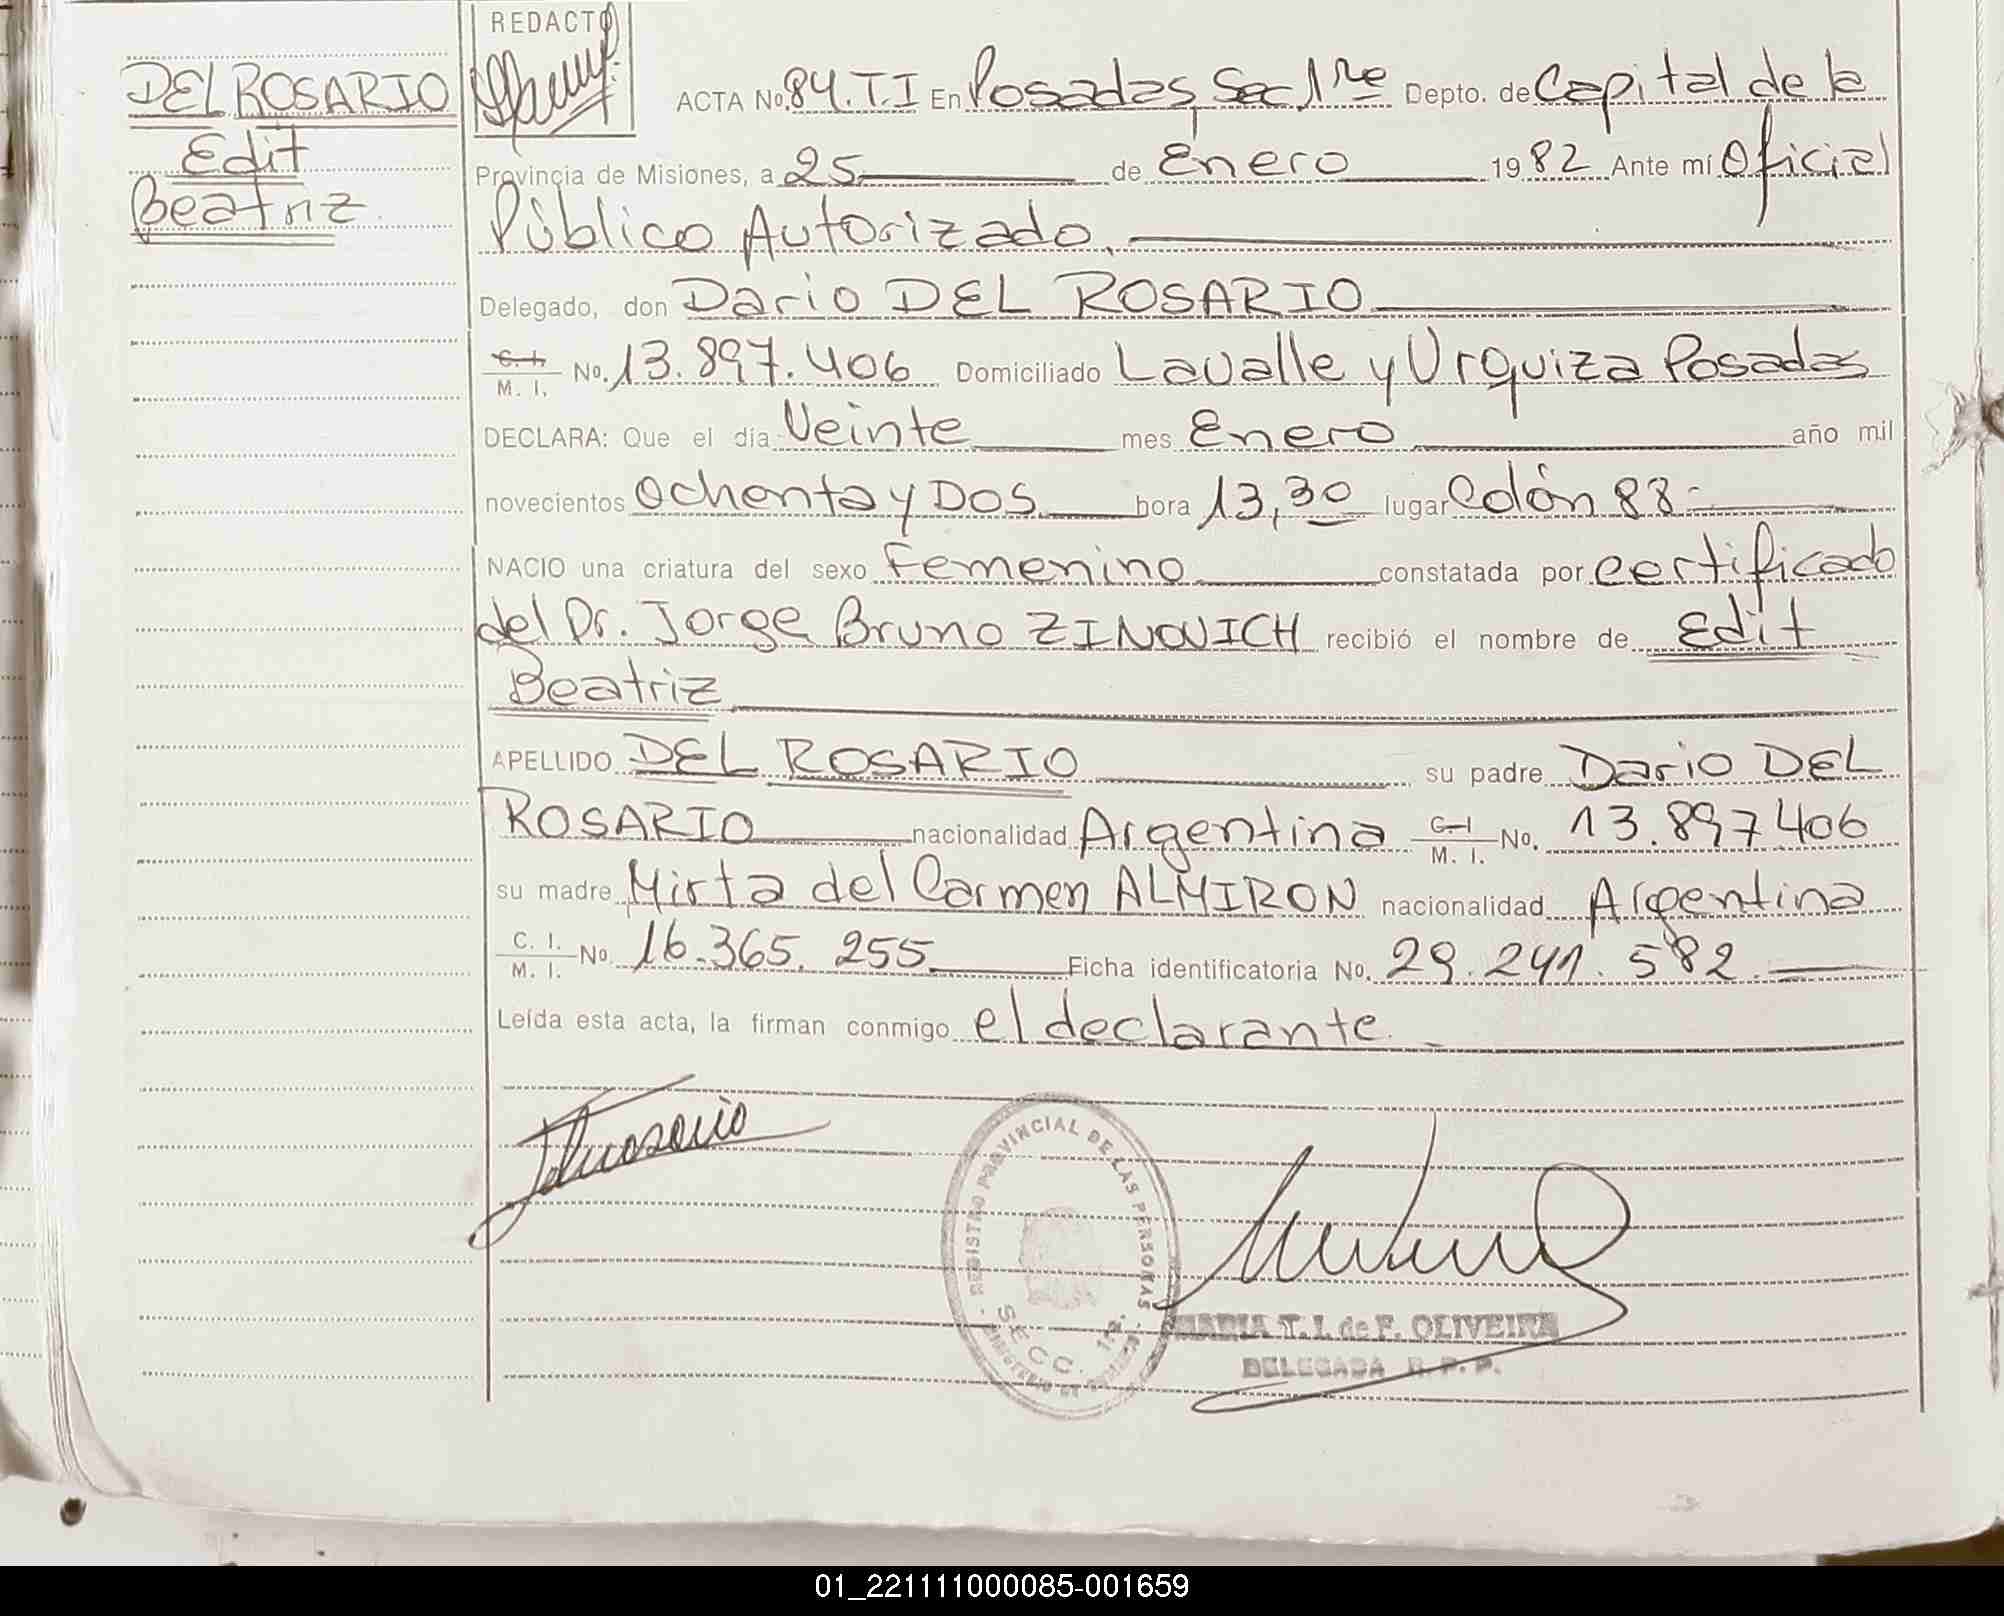 DEL ROSARIO
Edit
Beatriz
REDACTO
ACTA No. 84. T. I En Posadas, Sec 1ra Depto. de Capital de la
Provincia de Misiones, a 25 de Enero 1982 Ante mí Oficial
Público Autorizado,
Delegado, don Dario DEL ROSARIO
C. I. M. I. No. 13.897.406 Domiciliado Lavalle y Urquiza Posadas
DECLARA: Que el día Veinte mes Enero año mil
novecientos Ochenta y DOS hora 13,30 lugar Colón 88-
NACIO una criatura del sexo Femenino constatada por certificado
del Dr. Jorge Bruno ZINOVICH recibió el nombre de Edit
Beatriz
APELLIDO DEL ROSARIO su padre Dario DEL
ROSARIO nacionalidad Argentina C. I. M. I. No. 13.897406
su madre Mirta del Carmen ALMIRON nacionalidad Argentina
C. I. M. I. No. 16.365.255 Ficha identificatoria No. 29.241.582.
Leída esta acta, la firman conmigo el declarante.
REGISTRO PROVINCIAL DE LAS PERSONAS
SECC. 1ra.
MARIA T. I. de F. OLIVEIRA
DELEGADA R. P. P.
01_221111000085-001659